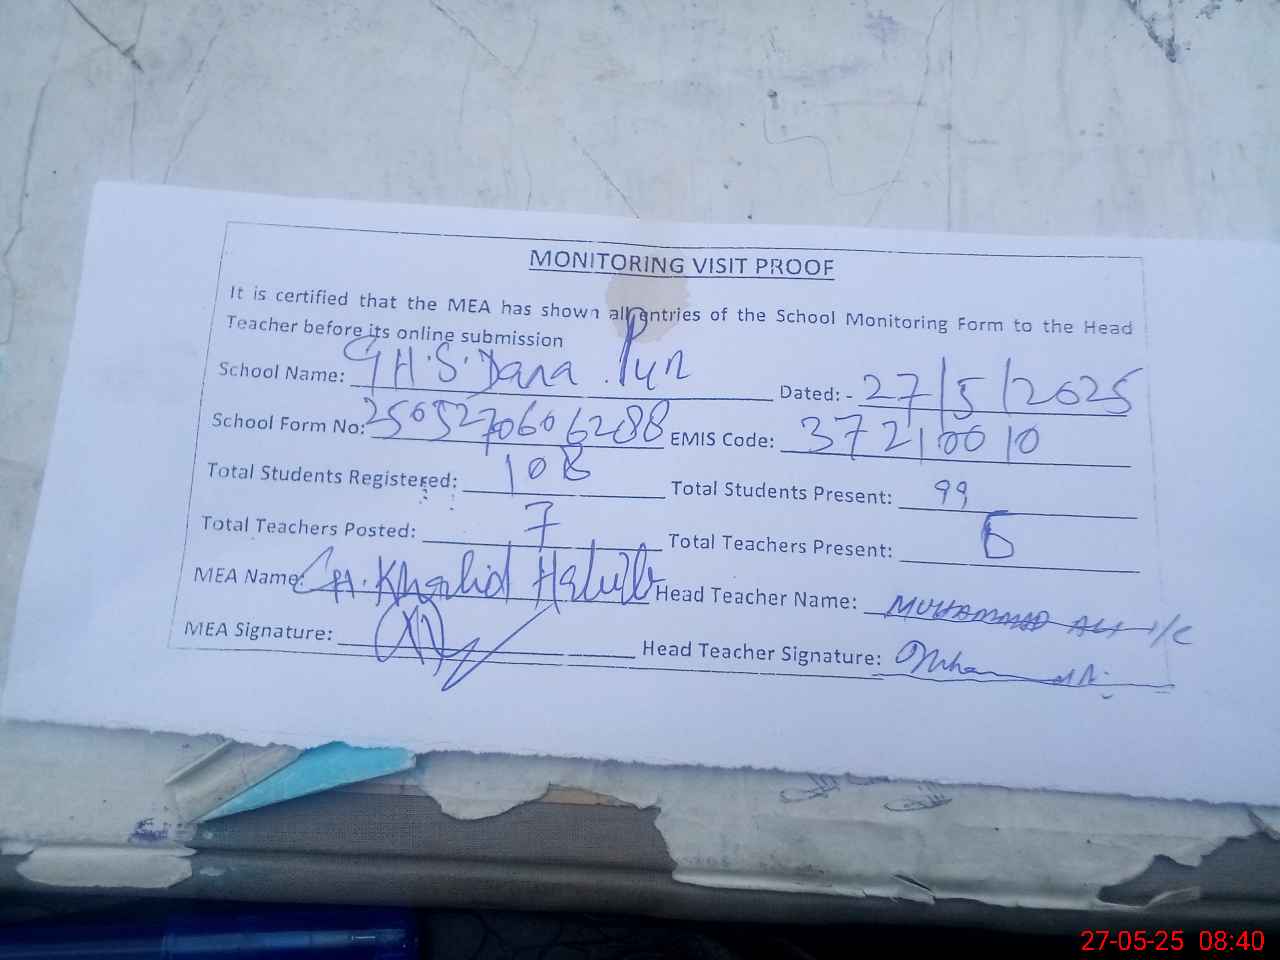 MONITORING VISIT PROOF
It is certified that the MEA has shown all entries of the School Monitoring Form to the Head
Teacher before its online submission
School Name: G H.S. Dana Pur Dated: - 27/5/2025
School Form No: 2505270606288 EMIS Code: 37210010
Total Students Registered: 108 Total Students Present: 99
Total Teachers Posted: 7 Total Teachers Present:
MEA Name: CH. Khalid Head Teacher Name: MUHAMMAD ALI I/C
MEA Signature: Head Teacher Signature:
27-05-25 08:40